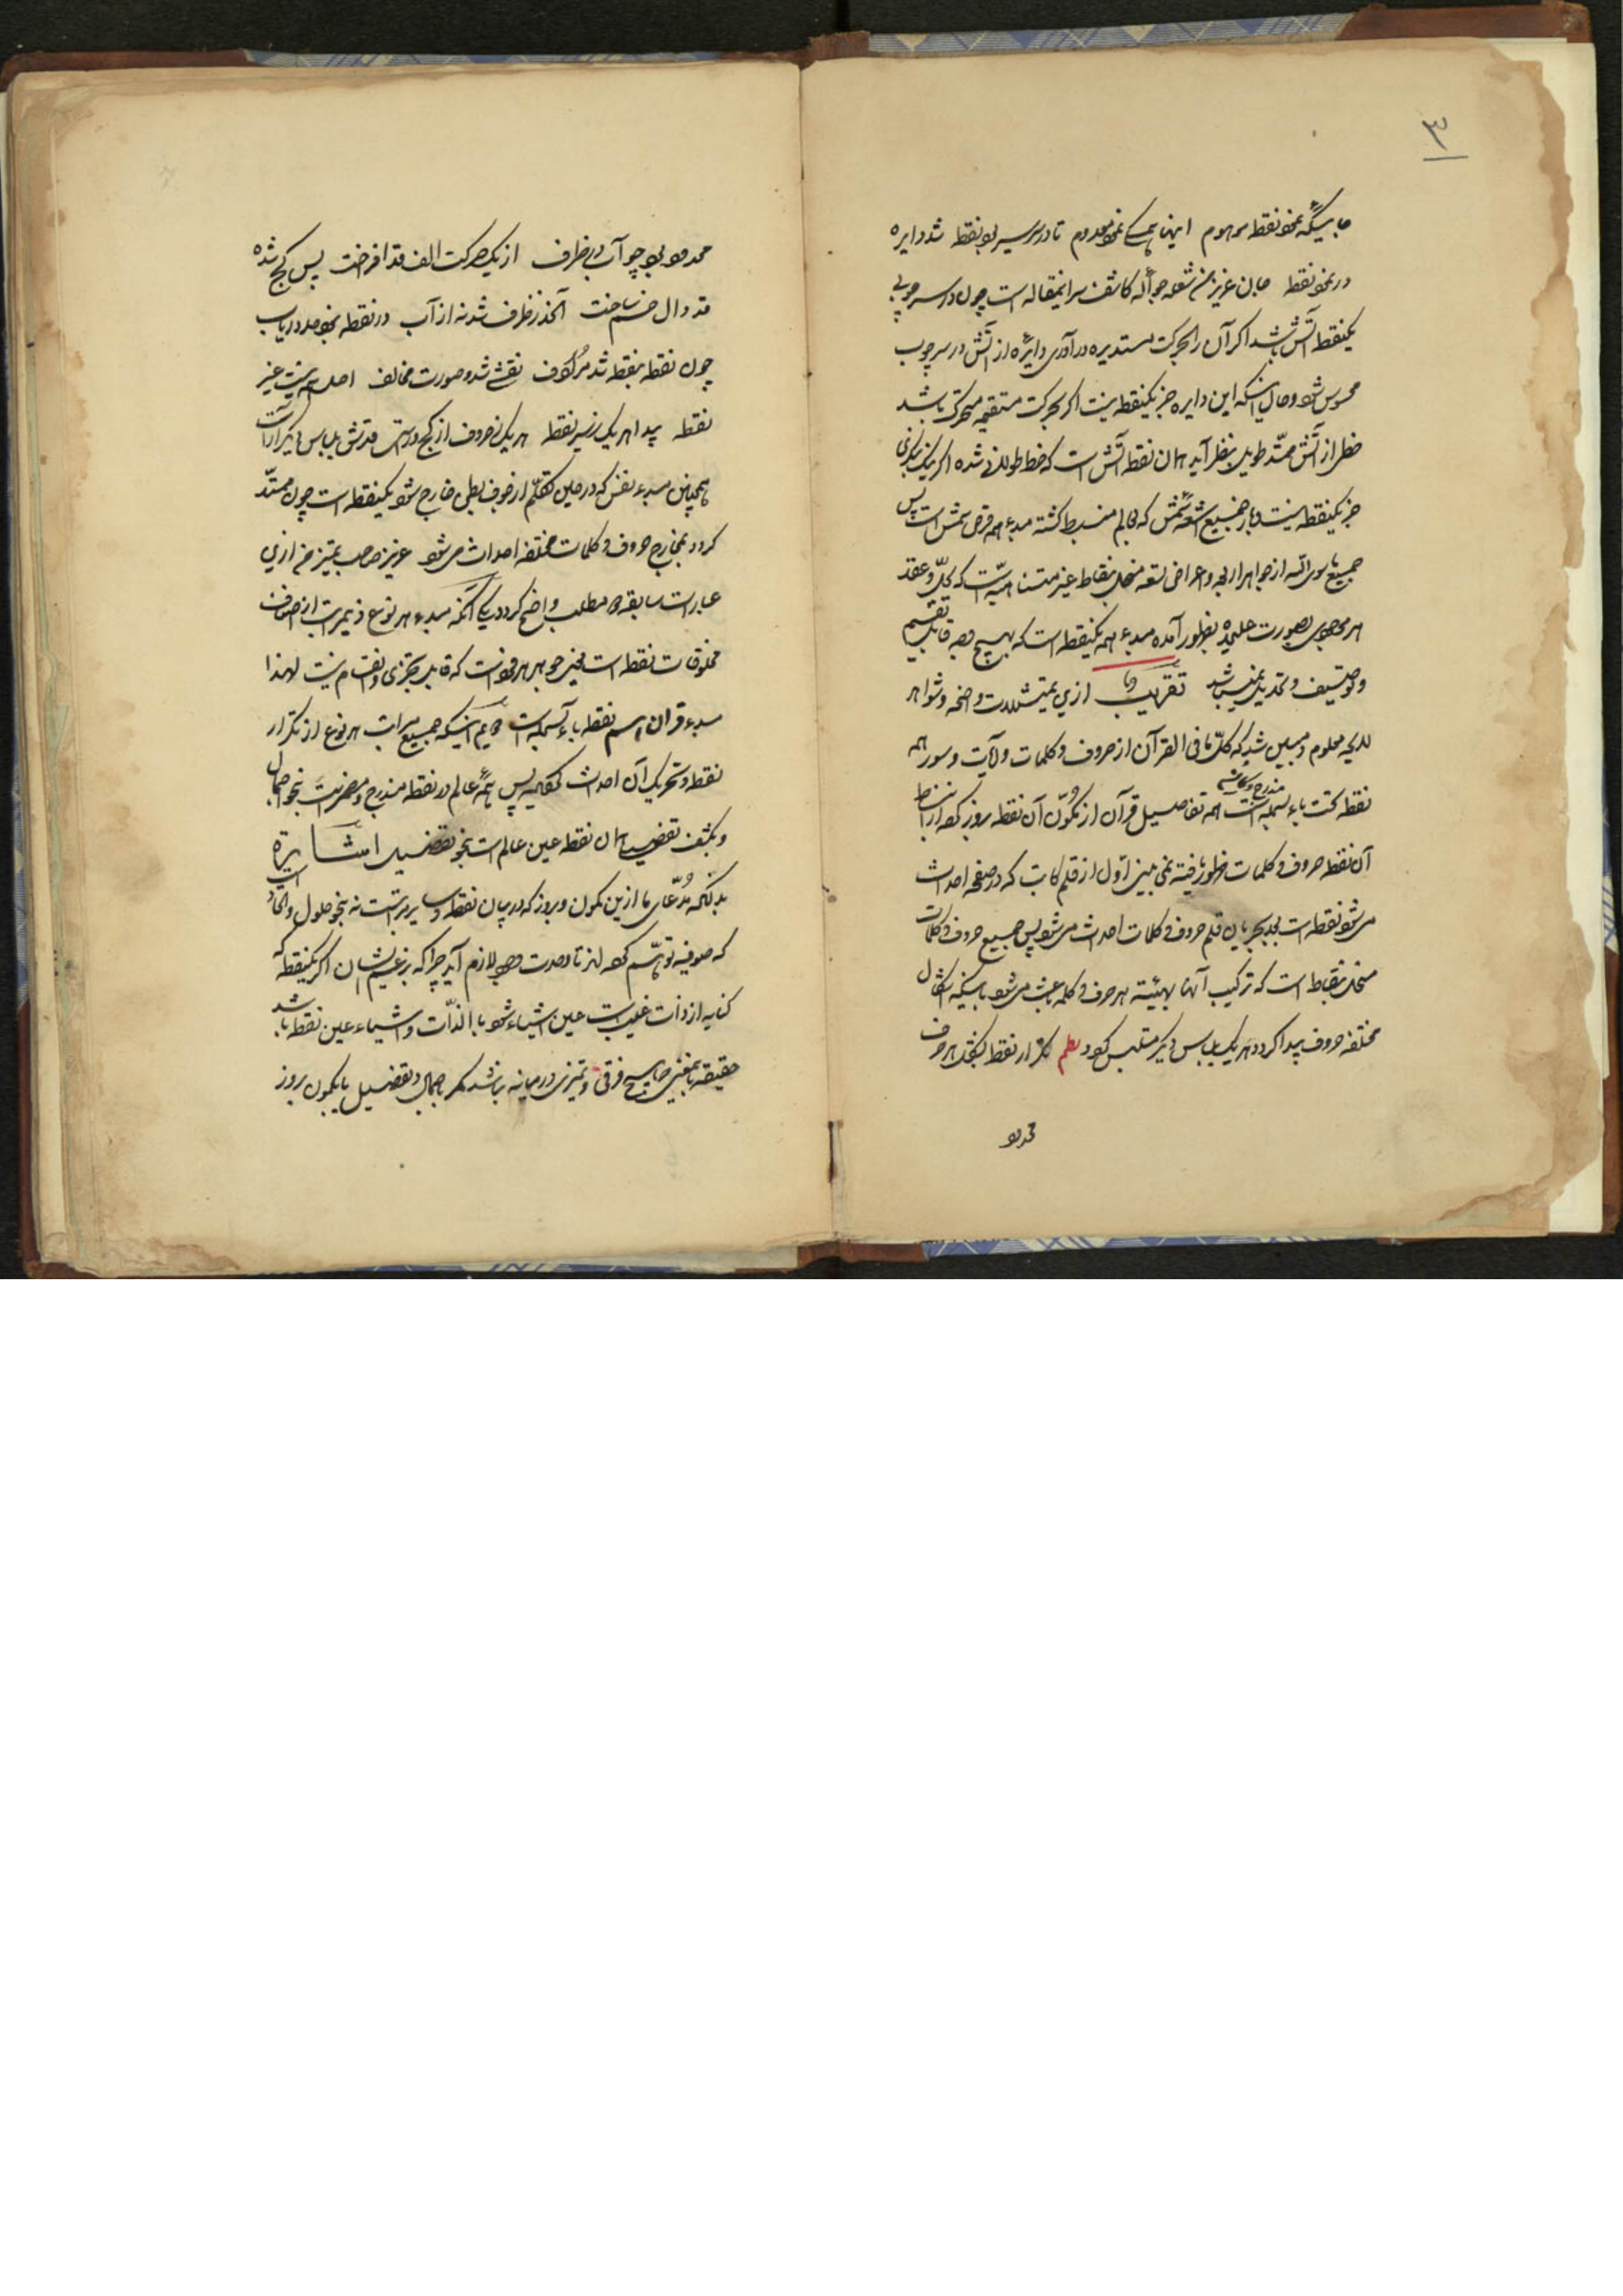 ۳
نقطه موهوم اینها همه معدوم تا در سر سیر بود نقطه شد دایره
در نقطه جان عزیز من شعله جواله کاشف سر اینمقاله است چون در سر چوبی
یکنقطه آتش باشد اگر آن را بحرکت مستدیره در آوری دایره از آتش در سر چوب
محسوس شود و حال آنکه این دایره جز یکنقطه نیست اگر بحرکت مستقیمه متحرک باشد
خطی از آتش ممتد طویل بنظر آید همان نقطه آتش است که خط طولانی شده اگر نیک بنگری
جز یکنقطه نیست جمیع اشعه شمس که بعالم منبسط گشته مبدء همه قرص شمس است پس
جمیع ماسوی الله از جواهر اربعه و اعراض تسعه منحل بنقاط غیر متناهیه است که بحل و عقد
هر موجودی بصورت علیحده بظهور آمده مبدء همه یکنقطه است که بهیچ وجه قابل تقسیم
و توصیف و تحدید نمیباشد تقریب از این تمثیلات واضحه و شواهد
لایحه معلوم و مبین شد که کل ما فی القرآن از حروف و کلمات و آیات و سور همه
نقطه تحت باء بسمله است مندرج همه تفاصیل قرآن از تکون آن نقطه بروز کرده از انبساط
آن نقطه حروف و کلمات ظهور یافته نمی بینی اول از قلم کاتب که در صفحه احداث
می شود نقطه است بعد بجریان قلم حروف و کلمات احداث می شود پس جمیع حروف و کلمات
منحل بنقاط است که ترکیب آنها بهیئته هر حرف و کلمه باعث می شود باینکه اشکال
مختلفه حروف پیدا کرده هر یک بلباس دیگر متلبس گردد نظم تکرار نقطه هر حرف
محدود
محدود بود چو آب در ظرف از یک حرکت الف قد افراخت پس کج شده
قد دال خم ساخت اخذ ز ظرف شد نه از آب در نقطه دریاب
چون نقطه بنقطه شد مرکوف نقشی شد و صورت مخالف اصلی نیست غیر
نقطه پیدا هر یک ز سیر نقطه هر یک ز حروف از کج و راست قدش بلباس دیگر آراست
همچنین مبدء نفس که در حین تکلم از جوف بطن خارج شود یکنقطه است چون ممتد
گردد بمخارج حروف و کلمات مختلفه احداث می شود عزیز صاحب تمیز من از این
عبارات سابقه دو مطلب واضح گردد یکی آنکه مبدء هر نوع ذیمراتب از اصناف
مخلوقات نقطه است یعنی جوهر فرد است که قابل تجزی و انقسام نیست لهذا
مبدء قران هم نقطه باء بسمله است دویم اینکه جمیع مراتب هر نوع از تکرار
نقطه و تحریک آن احداث پس همه عالم در نقطه مندرج و مضمر است بنحو اجمال
و بکشف تفصیل همان نقطه عین عالم است بنحو تفصیل اشاره
بدانکه مدعای ما از این کمون و بروز که در میان نقطه و سایر مراتب است نه بنحو حلول و اتحاد
که صوفیه توهم کرده اند تا وحدت وجود لازم آید چرا که بزعم ایشان اگر یکنقطه که
کنایه از ذات غایب است عین اشیاء شود بالذات و اشیاء عین نقطه باشد
حقیقة بمعنی که هیچ فرقی و تمیزی در میانه نباشد مگر باجمال و تفصیل یا بکمون و بروز